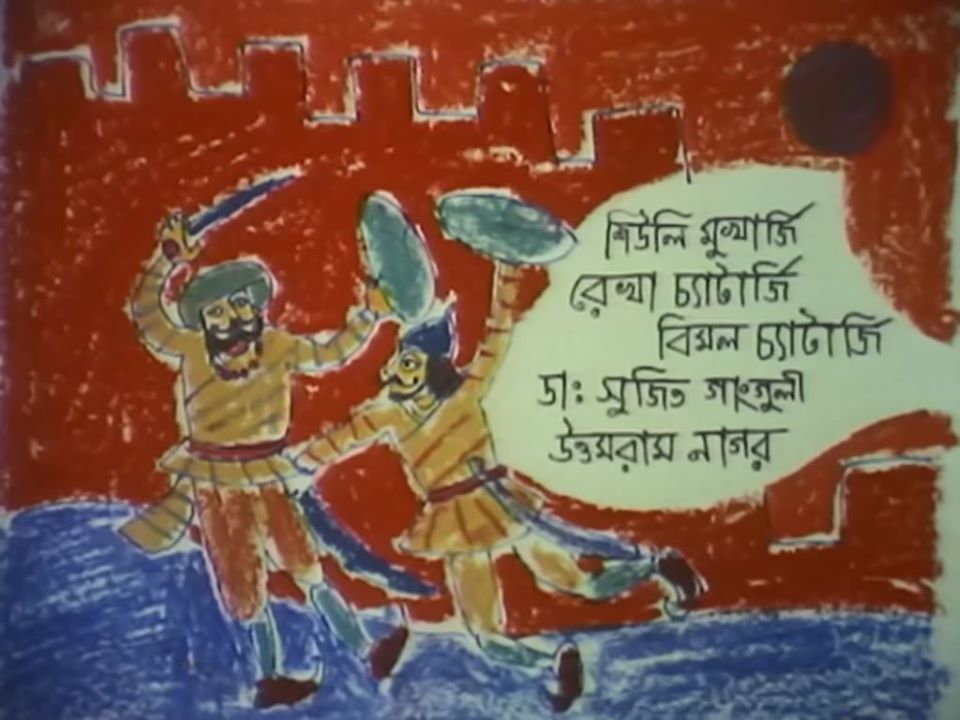 শিউলি মুখার্জি
রেখা চ্যাটার্জি
বিমল চ্যাটার্জি
ডাঃ সুজিত গাংগুলী
উত্তমরাম নাগর